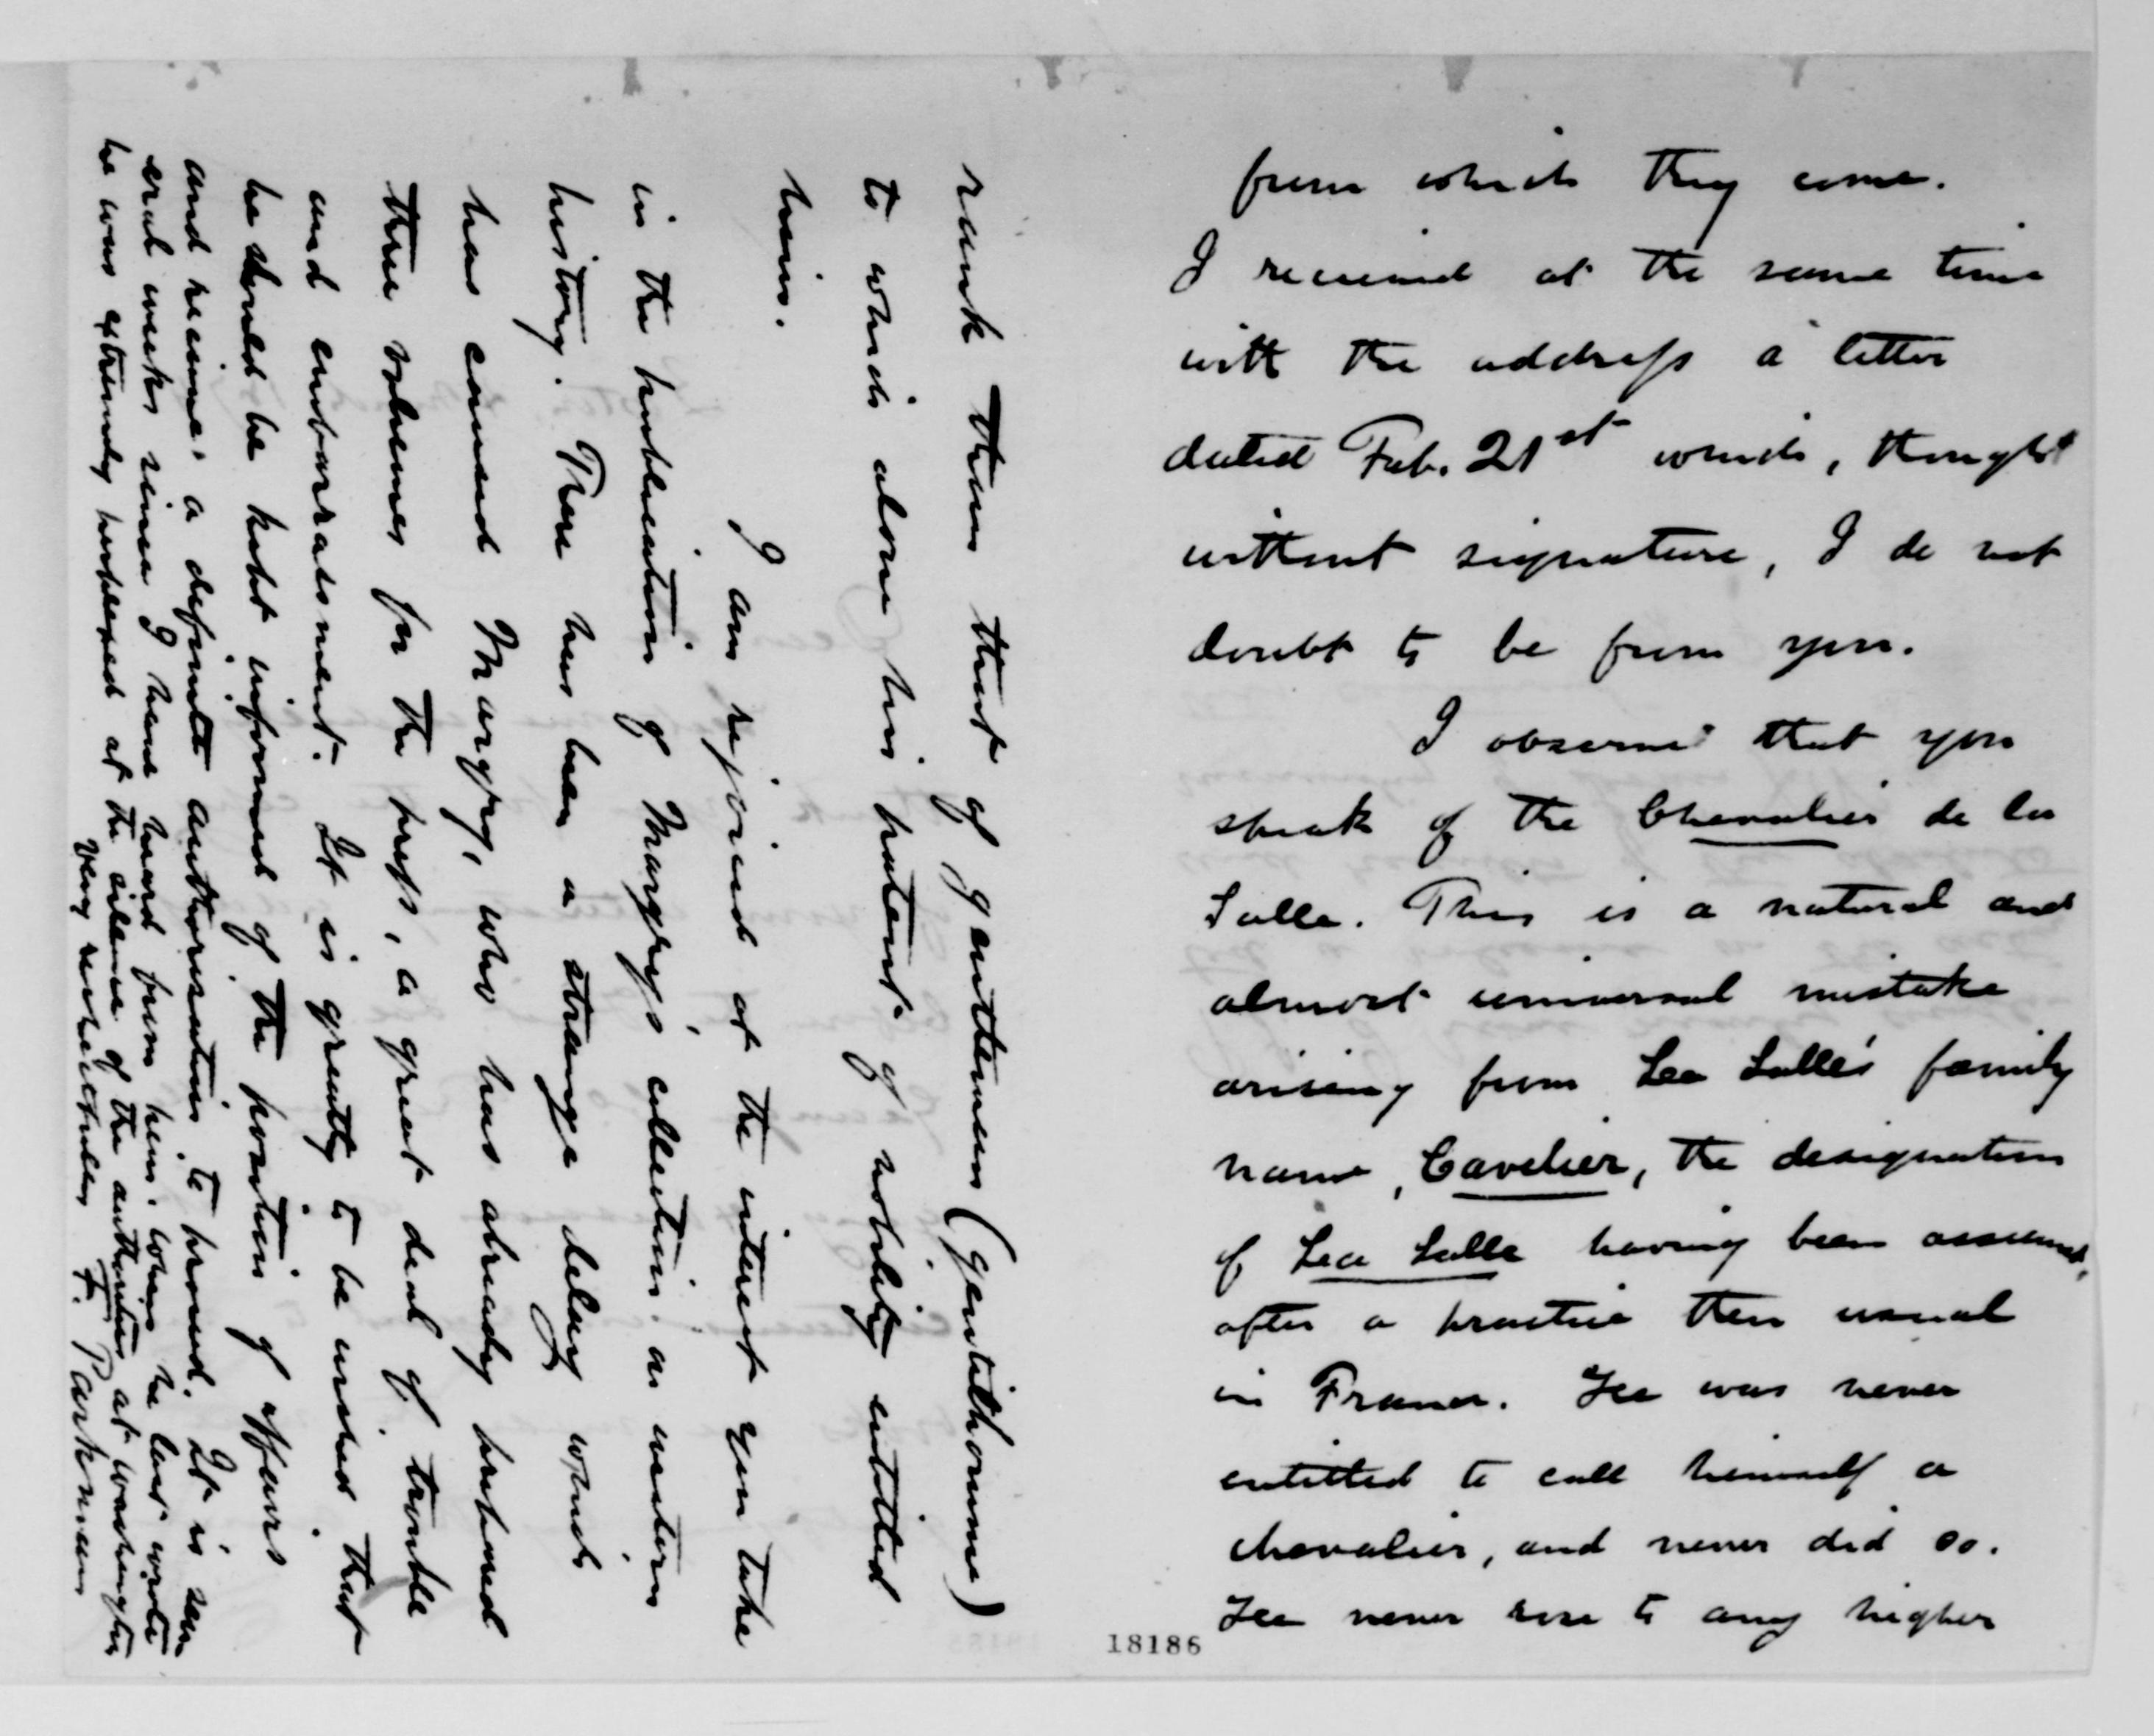 from which they come.
I received at the same time
with the address a letter
dated Feb. 21st which, though
without signature, I do not
doubt to be from you.
I observe that you
speak of the Chevalier de la
Salle. This is a natural and
almost universal mistake
arising from La Salle's family
name, Cavelier, the designation
of La Salle having been assumed,
after a practice then usual
in France. He was never
entitled to call himself a
chevalier, and never did so.
He never rose to any higher
18186
rank than that of gentleman (gentilhomme)
to which alone his patent of nobility entitled
him.
I am rejoiced at the interest you take
in the publication of Margry's collection as western
history. There has been a strange delay which
has caused Margry, who has already prepared
three volumes for the press, a great deal of trouble
and embarrassment. It is greatly to be wished that
he should be kept informed of the position of affairs
and receive a definite authorization to proceed. It is sev
eral weeks since I have heard from him. When he last wrote
he was extremely perplexed at the silence of the authorities at Washington
Very respectfully F. Parkman